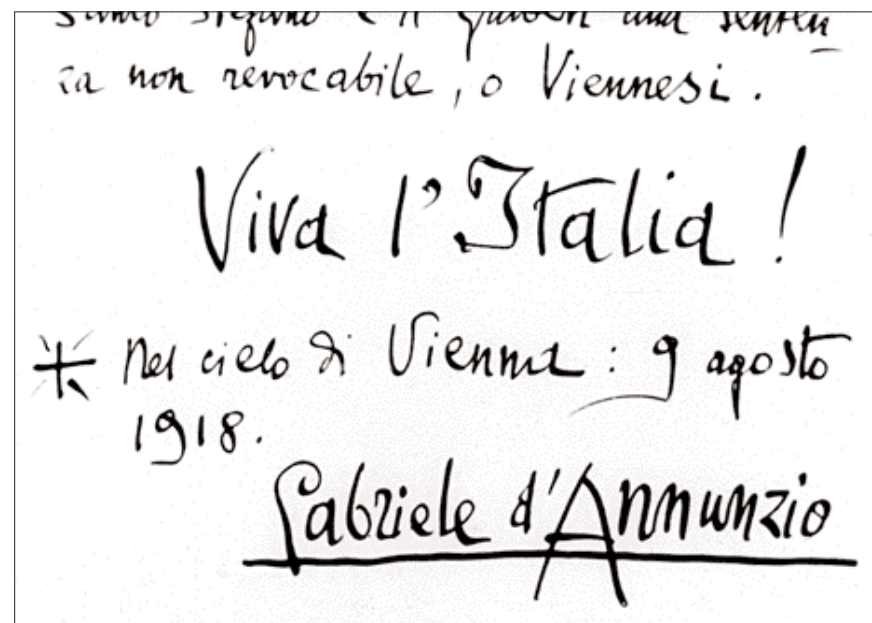 Santo Stefano e il Graben una senten_
za non revocabile, o Viennesi.
Viva l'Italia!
* Nel cielo di Vienna: 9 agosto
1918.
Gabriele d'Annunzio